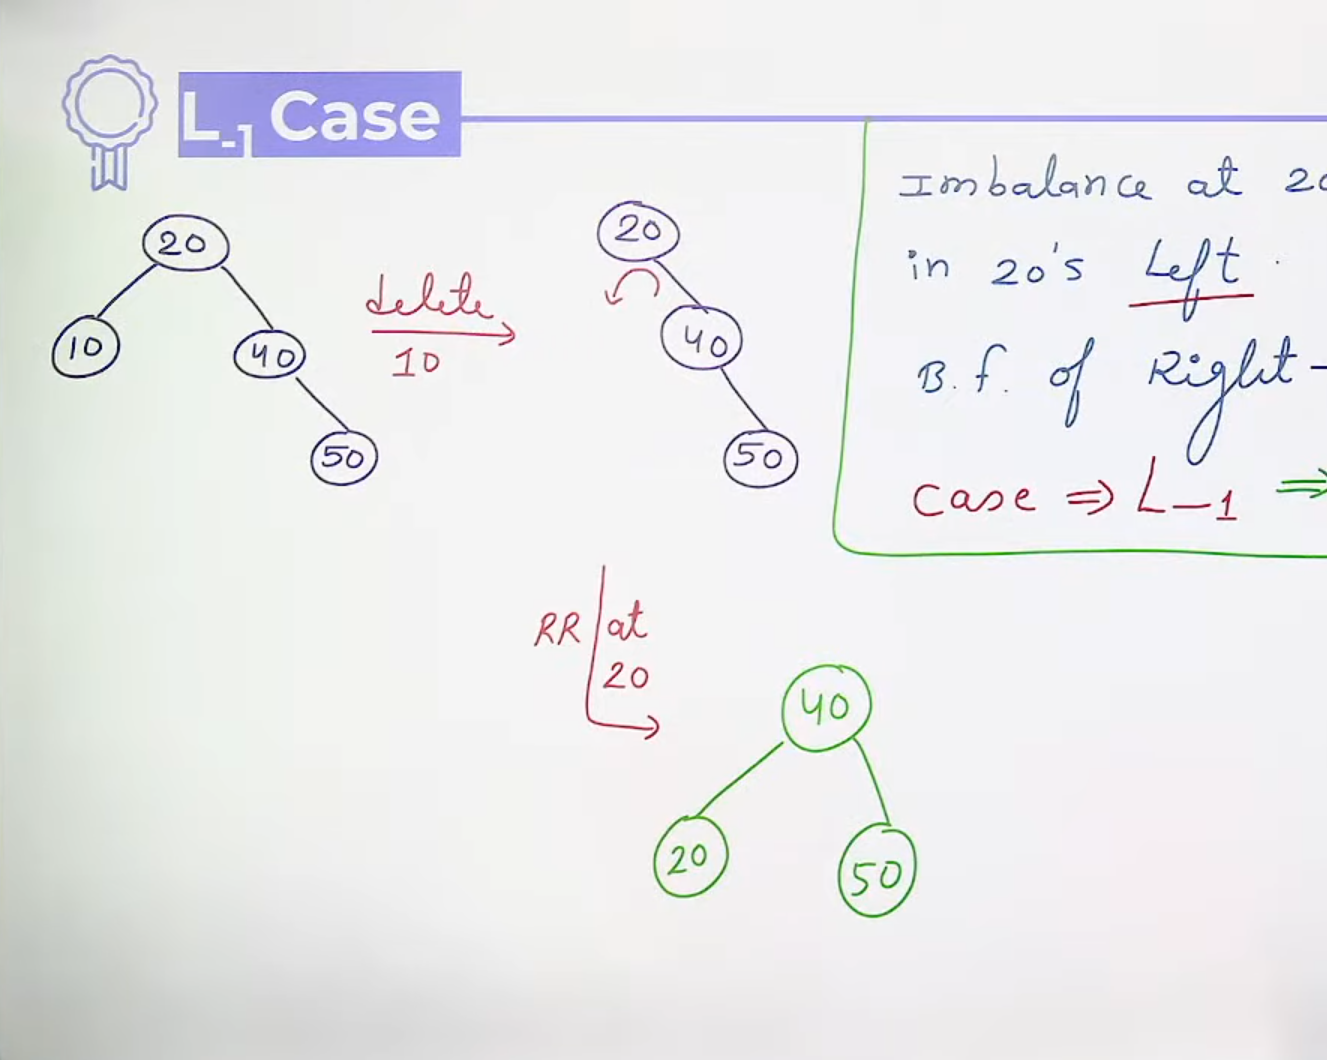 L-1 Case
20
10
40
50
delete
10
20
40
50
Imbalance at 20
in 20's Left.
B.f. of Right -
Case ⇒ L-1 ⇒
RR at
20
40
20
50